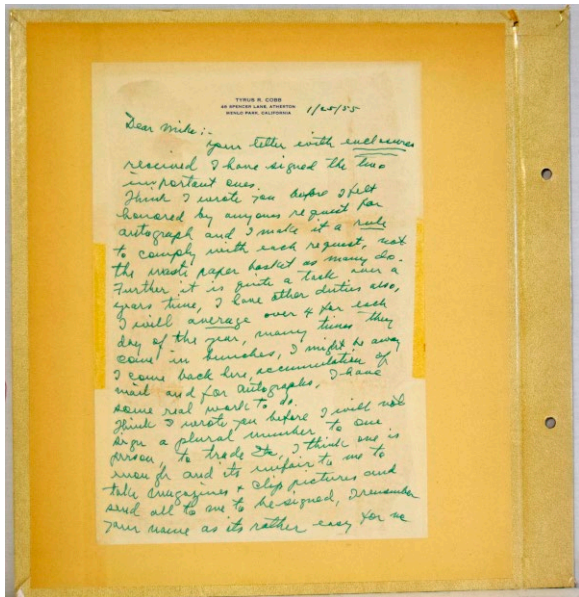 TYRUS R. COBB
48 SPENCER LANE, ATHERTON
MENLO PARK, CALIFORNIA
1/25/55
Dear Mike:-
Your letter with enclosures
received I have signed the two
important ones.
Think I wrote you before I felt
honored by anyones request for
autograph and I make it a rule
to comply with each request, not
the waste paper basket as many do.
Further it is quite a task over a
years time, I have other duties also,
I will average over 4 for each
day of the year, many times they
come in bunches, I might be away
I come back here, accumulation of
mail and for autographs, I have
some real work to do.
Think I wrote you before I will not
sign a plural number to one
person, to trade Etc, I think one is
enough and its unfair to me to
take magazines + clip pictures and
send all to me to be signed, I remember
your name as its rather easy for me